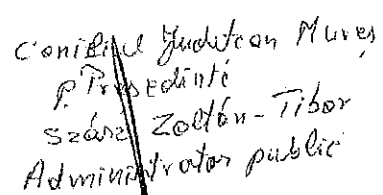 Consiliul Județean Mureș
p. Președinte
Szász Zoltán-Tibor
Administrator public